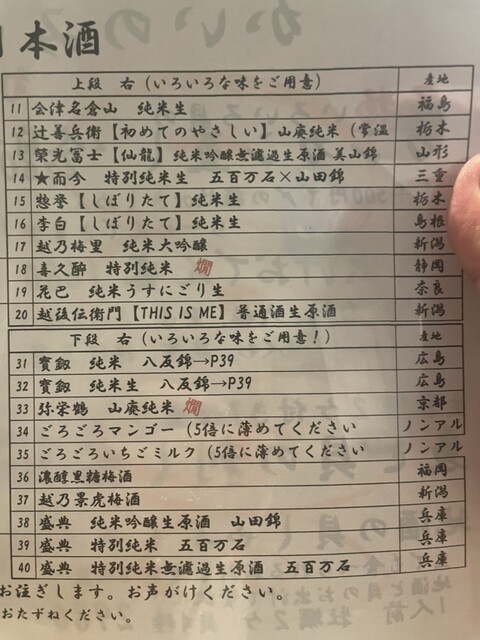 日本酒
上段 右（いろいろな味をご用意） 産地
11 会津名倉山 純米生 福島
12 辻善兵衛【初めてのやさしい】山廃純米（常温 栃木
13 榮光冨士【仙龍】純米吟醸無濾過生原酒 美山錦 山形
14 ★而今 特別純米生 五百万石×山田錦 三重
15 惣誉【しぼりたて】純米生 栃木
16 李白【しぼりたて】純米生 島根
17 越乃梅里 純米大吟醸 新潟
18 喜久酔 特別純米 燗 静岡
19 花巴 純米うすにごり生 奈良
20 越後伝衛門【THIS IS ME】普通酒生原酒 新潟
下段 右（いろいろな味をご用意！） 産地
31 寳劔 純米 八反錦→P39 広島
32 寳劔 純米生 八反錦→P39 広島
33 弥栄鶴 山廃純米 燗 京都
34 ごろごろマンゴー（5倍に薄めてください ノンアル
35 ごろごろいちごミルク（5倍に薄めてください ノンアル
36 濃醇黒糖梅酒 福岡
37 越乃景虎梅酒 新潟
38 盛典 純米吟醸生原酒 山田錦 兵庫
39 盛典 特別純米 五百万石 兵庫
40 盛典 特別純米無濾過生原酒 五百万石 兵庫
お注ぎします。お声がけください。
おたずねください。